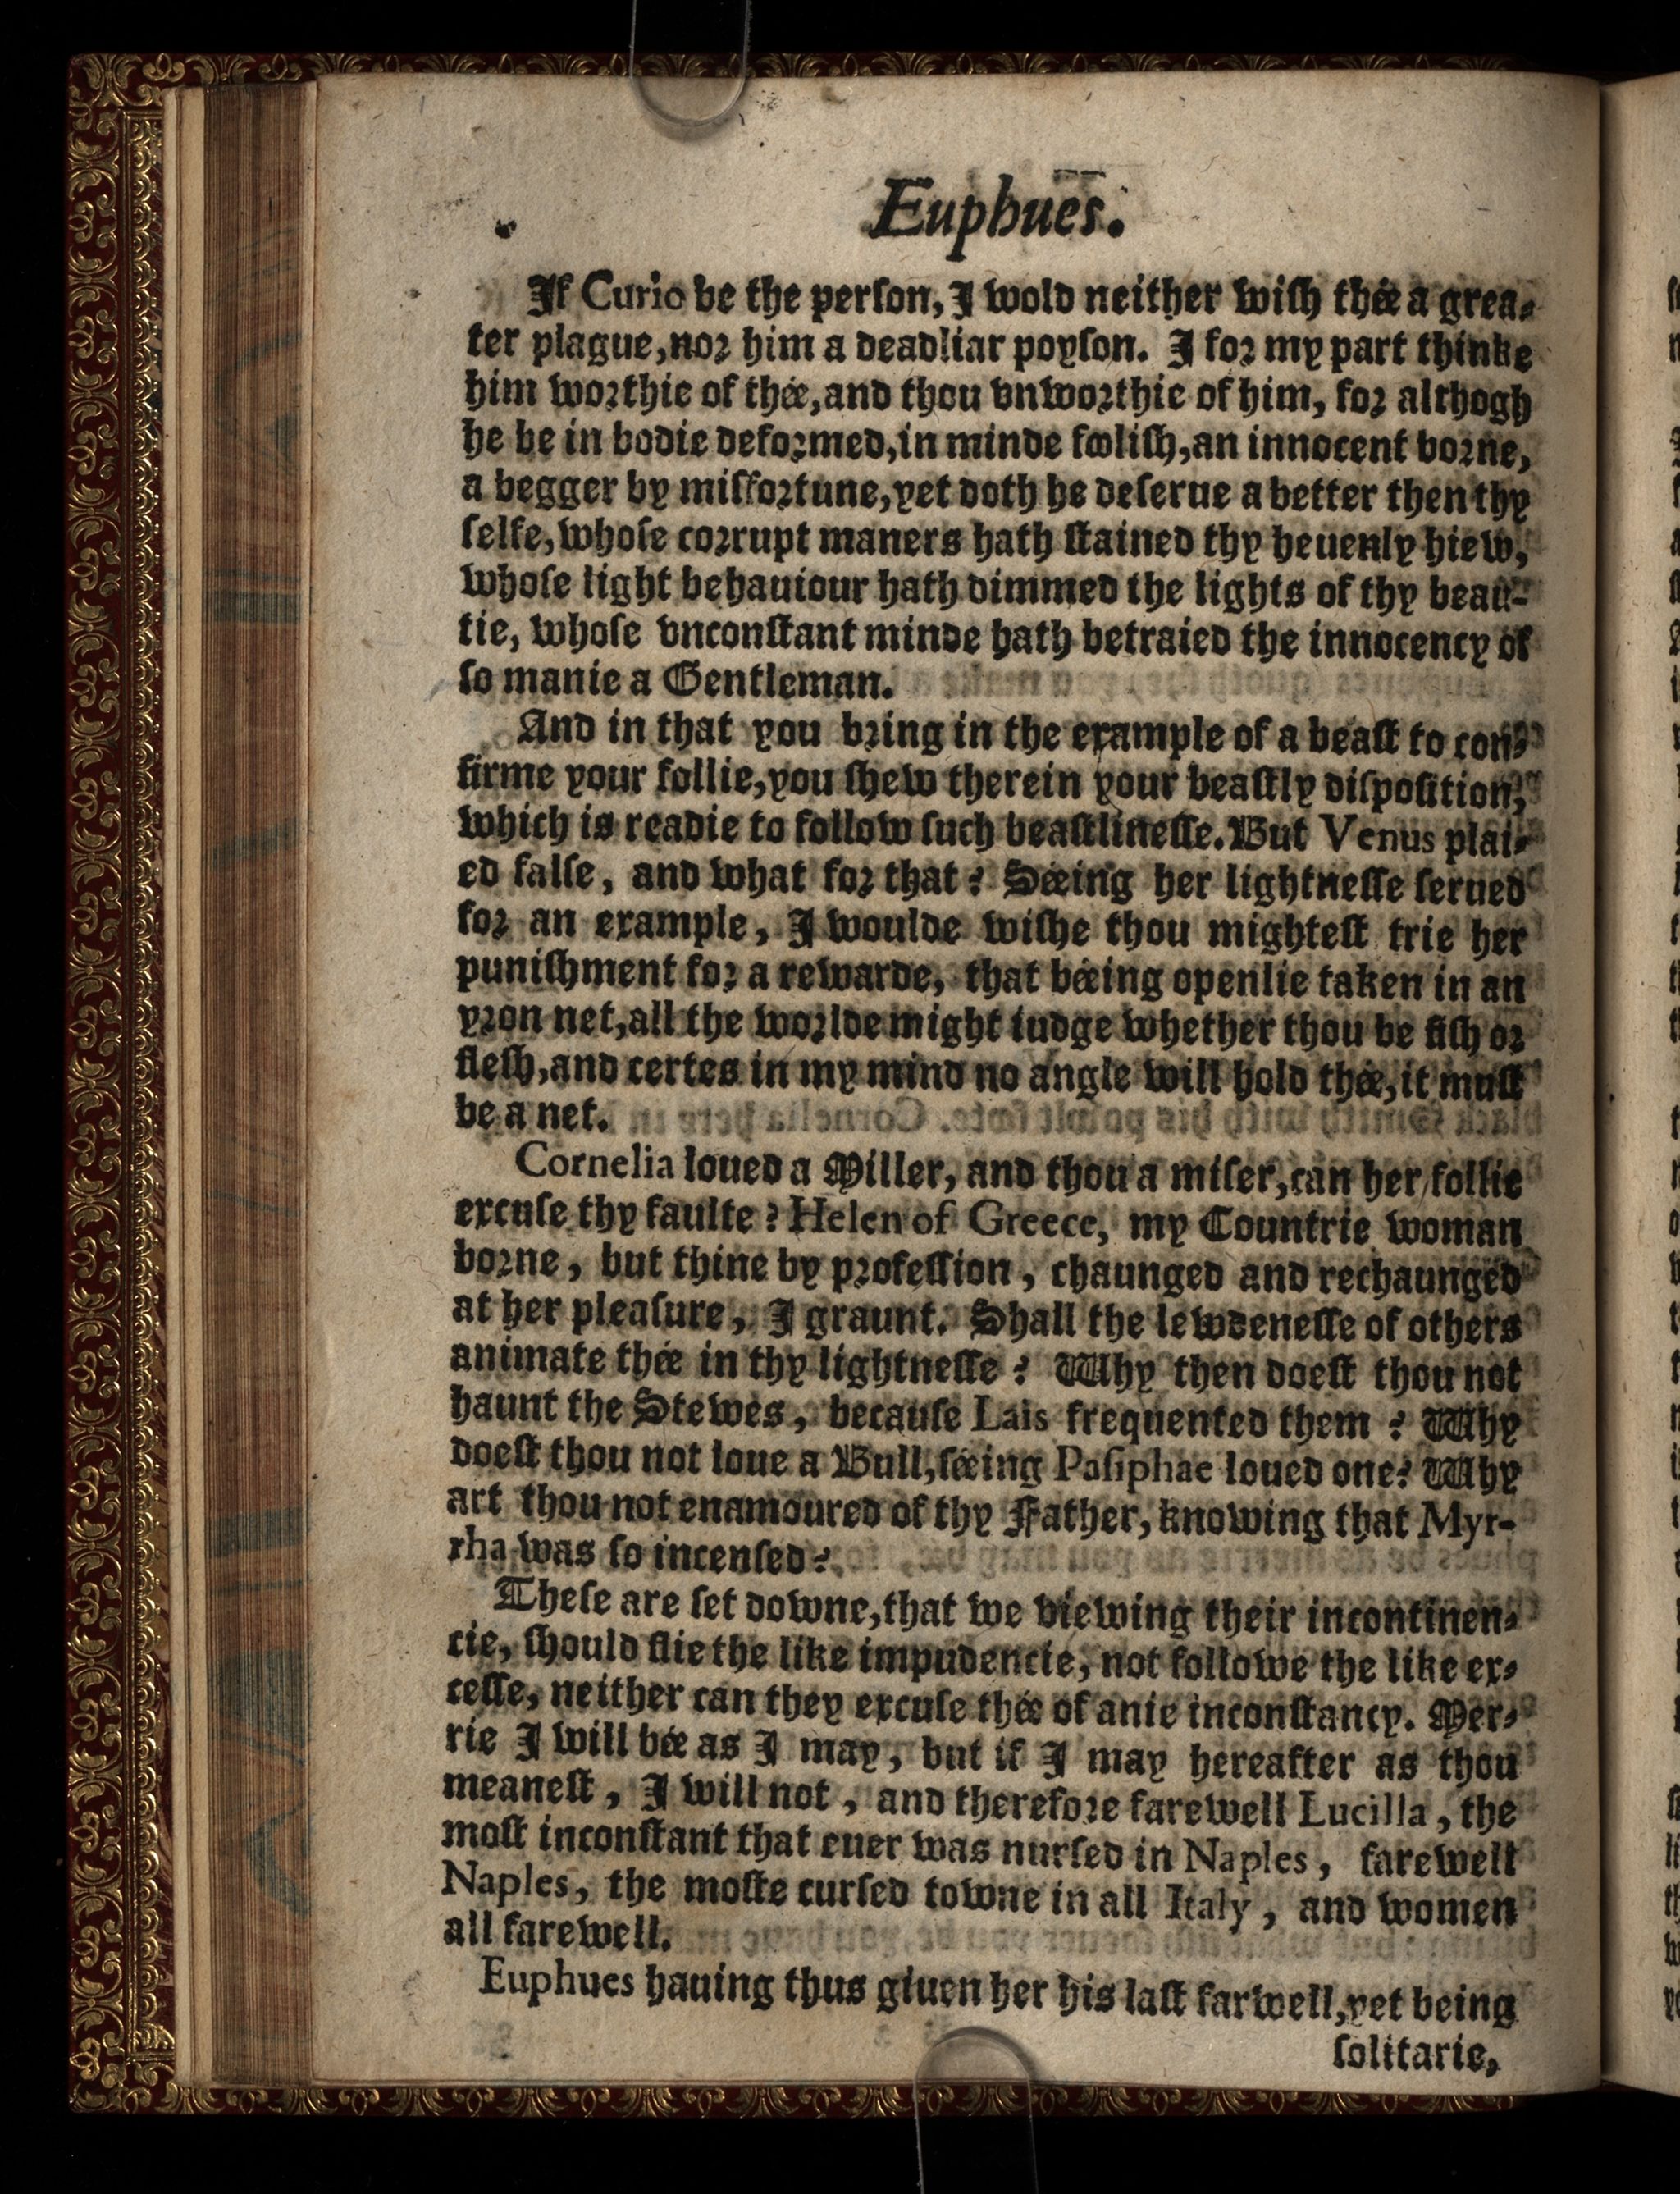 Euphues.
If Curio be the perſon, I wold neither wiſh thée a grea-
ter plague, nor him a deadliar poyſon. I for my part thinke
him worthie of thée, and thou vnworthie of him, for althogh
he be in bodie deformed, in minde fooliſh, an innocent borne,
a begger by miſfortune, yet doth he deſerue a better then thy
ſelfe, whoſe corrupt maners hath ſtained thy heuenly hiew,
whoſe light behauiour hath dimmed the lights of thy beau-
tie, whoſe vnconſtant minde hath betraied the innocency of
ſo manie a Gentleman.
And in that you bring in the example of a beaſt to con-
firme your follie, you ſhew therein your beaſtly diſpoſition,
which is readie to follow ſuch beaſtlineſſe. But Venus plai-
ed falſe, and what for that? Séeing her lightneſſe ſerued
for an example, I woulde wiſhe thou mighteſt trie her
puniſhment for a rewarde, that béeing openlie taken in an
yron net, all the worlde might iudge whether thou be fiſh or
fleſh, and certes in my mind no angle will hold thée, it muſt
be a net.
Cornelia loued a Miller, and thou a miſer, can her follie
excuſe thy faulte? Helen of Greece, my Countrie woman
borne, but thine by profeſſion, chaunged and rechaunged
at her pleaſure, I graunt. Shall the lewdeneſſe of others
animate thée in thy lightneſſe? Why then doeſt thou not
haunt the Stewes, becauſe Lais frequented them? Why
doeſt thou not loue a Bull, ſéeing Paſiphae loued one? Why
art thou not enamoured of thy Father, knowing that Myr-
rha was ſo incenſed?
Theſe are ſet downe, that we viewing their incontinen-
cie, ſhould flie the like impudencie, not followe the like ex-
ceſſe, neither can they excuſe thée of anie inconſtancy. Mer-
rie I will bée as I may, but if I may hereafter as thou
meaneſt, I will not, and therefore farewell Lucilla, the
moſt inconſtant that euer was nurſed in Naples, farewell
Naples, the moſte curſed towne in all Italy, and women
all farewell.
Euphues hauing thus giuen her his laſt farwell, yet being
ſolitarie,